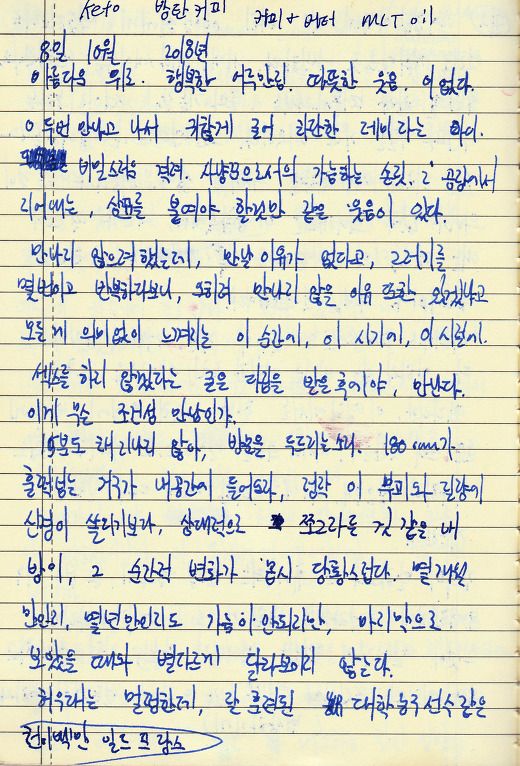 Keto 방탄커피 커피 + 버터 MLT oil
8일 10월 2018년
아름다운 위로. 행복한 어루만짐. 따뜻한 웃음. 이 없다.
두번 만나고 나서 귀찮게 굴어 차단한 레이 라는 아이.
비밀스러운 격려. 사냥꾼으로서의 가늠하는 손짓. 그 공간에서
리어내는, 상표를 붙여야 할것만 같은 웃음이 있다.
만나지 않으려 했는데, 만날 이유가 없다고, 그러기를
몇번이고 반복하다보니, 오히려 만나지 않을 이유 또한 있겠냐고
모든게 의미없이 느껴지는 이 순간에, 이 시기에, 이 시절에.
섹스를 하지 않겠다는 굳은 다짐을 받은 후에야, 만난다.
이게 무슨 조건성 만남인가.
15분도 채 지나지 않아, 방문을 두드리는 소리. 180 cm가
훌쩍 넘는 거구가 내공간에 들어오자, 덥썩 이 부피와 질량에
신경이 쏠리기보다, 상대적으로 쪼그라든 것 같은 내
방이, 그 순간적 변화가 몹시 당황스럽다. 몇개월
만인지, 몇년만인지도 가늠이 안되지만, 마지막으로
보았을 때와 별다르게 달라보이지 않는다.
허우대는 멀쩡한데, 잘 훈련된 대학농구선수같은
천이백만 일드 프랑스